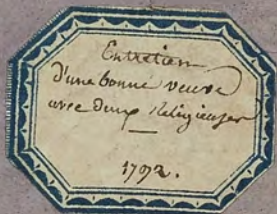 Entretien
d'une bonne veuve
avec deux Religieuses
1792.